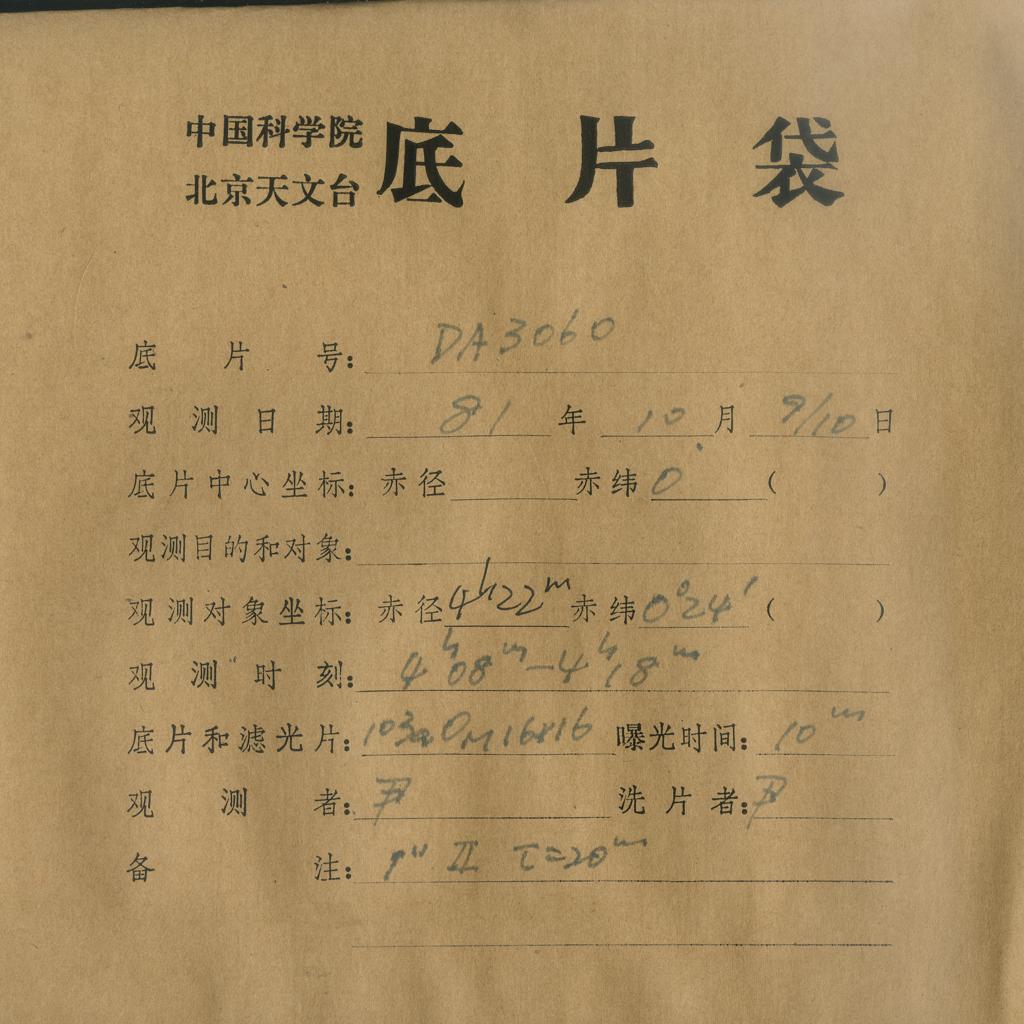 中国科学院
北京天文台 底片袋
底片号: DA3060
观测日期: 81年 10月 9/10日
底片中心坐标: 赤径 赤纬 0° ( )
观测目的和对象:
观测对象坐标: 赤径 4h22m 赤纬 0°24′ ( )
观测时刻: 4h08m—4h18m
底片和滤光片: 103aO 16×16 曝光时间: 10m
观测者: 尹 洗片者: 尹
备注: 1" II τ=20m